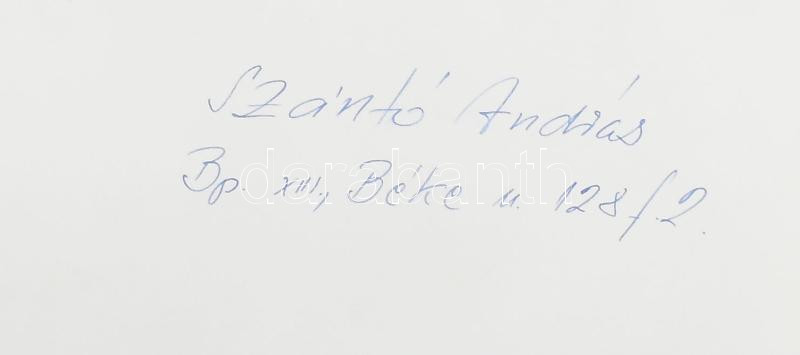 Szántó András
Bp. XIII., Béke u. 128f.2.
darabanth